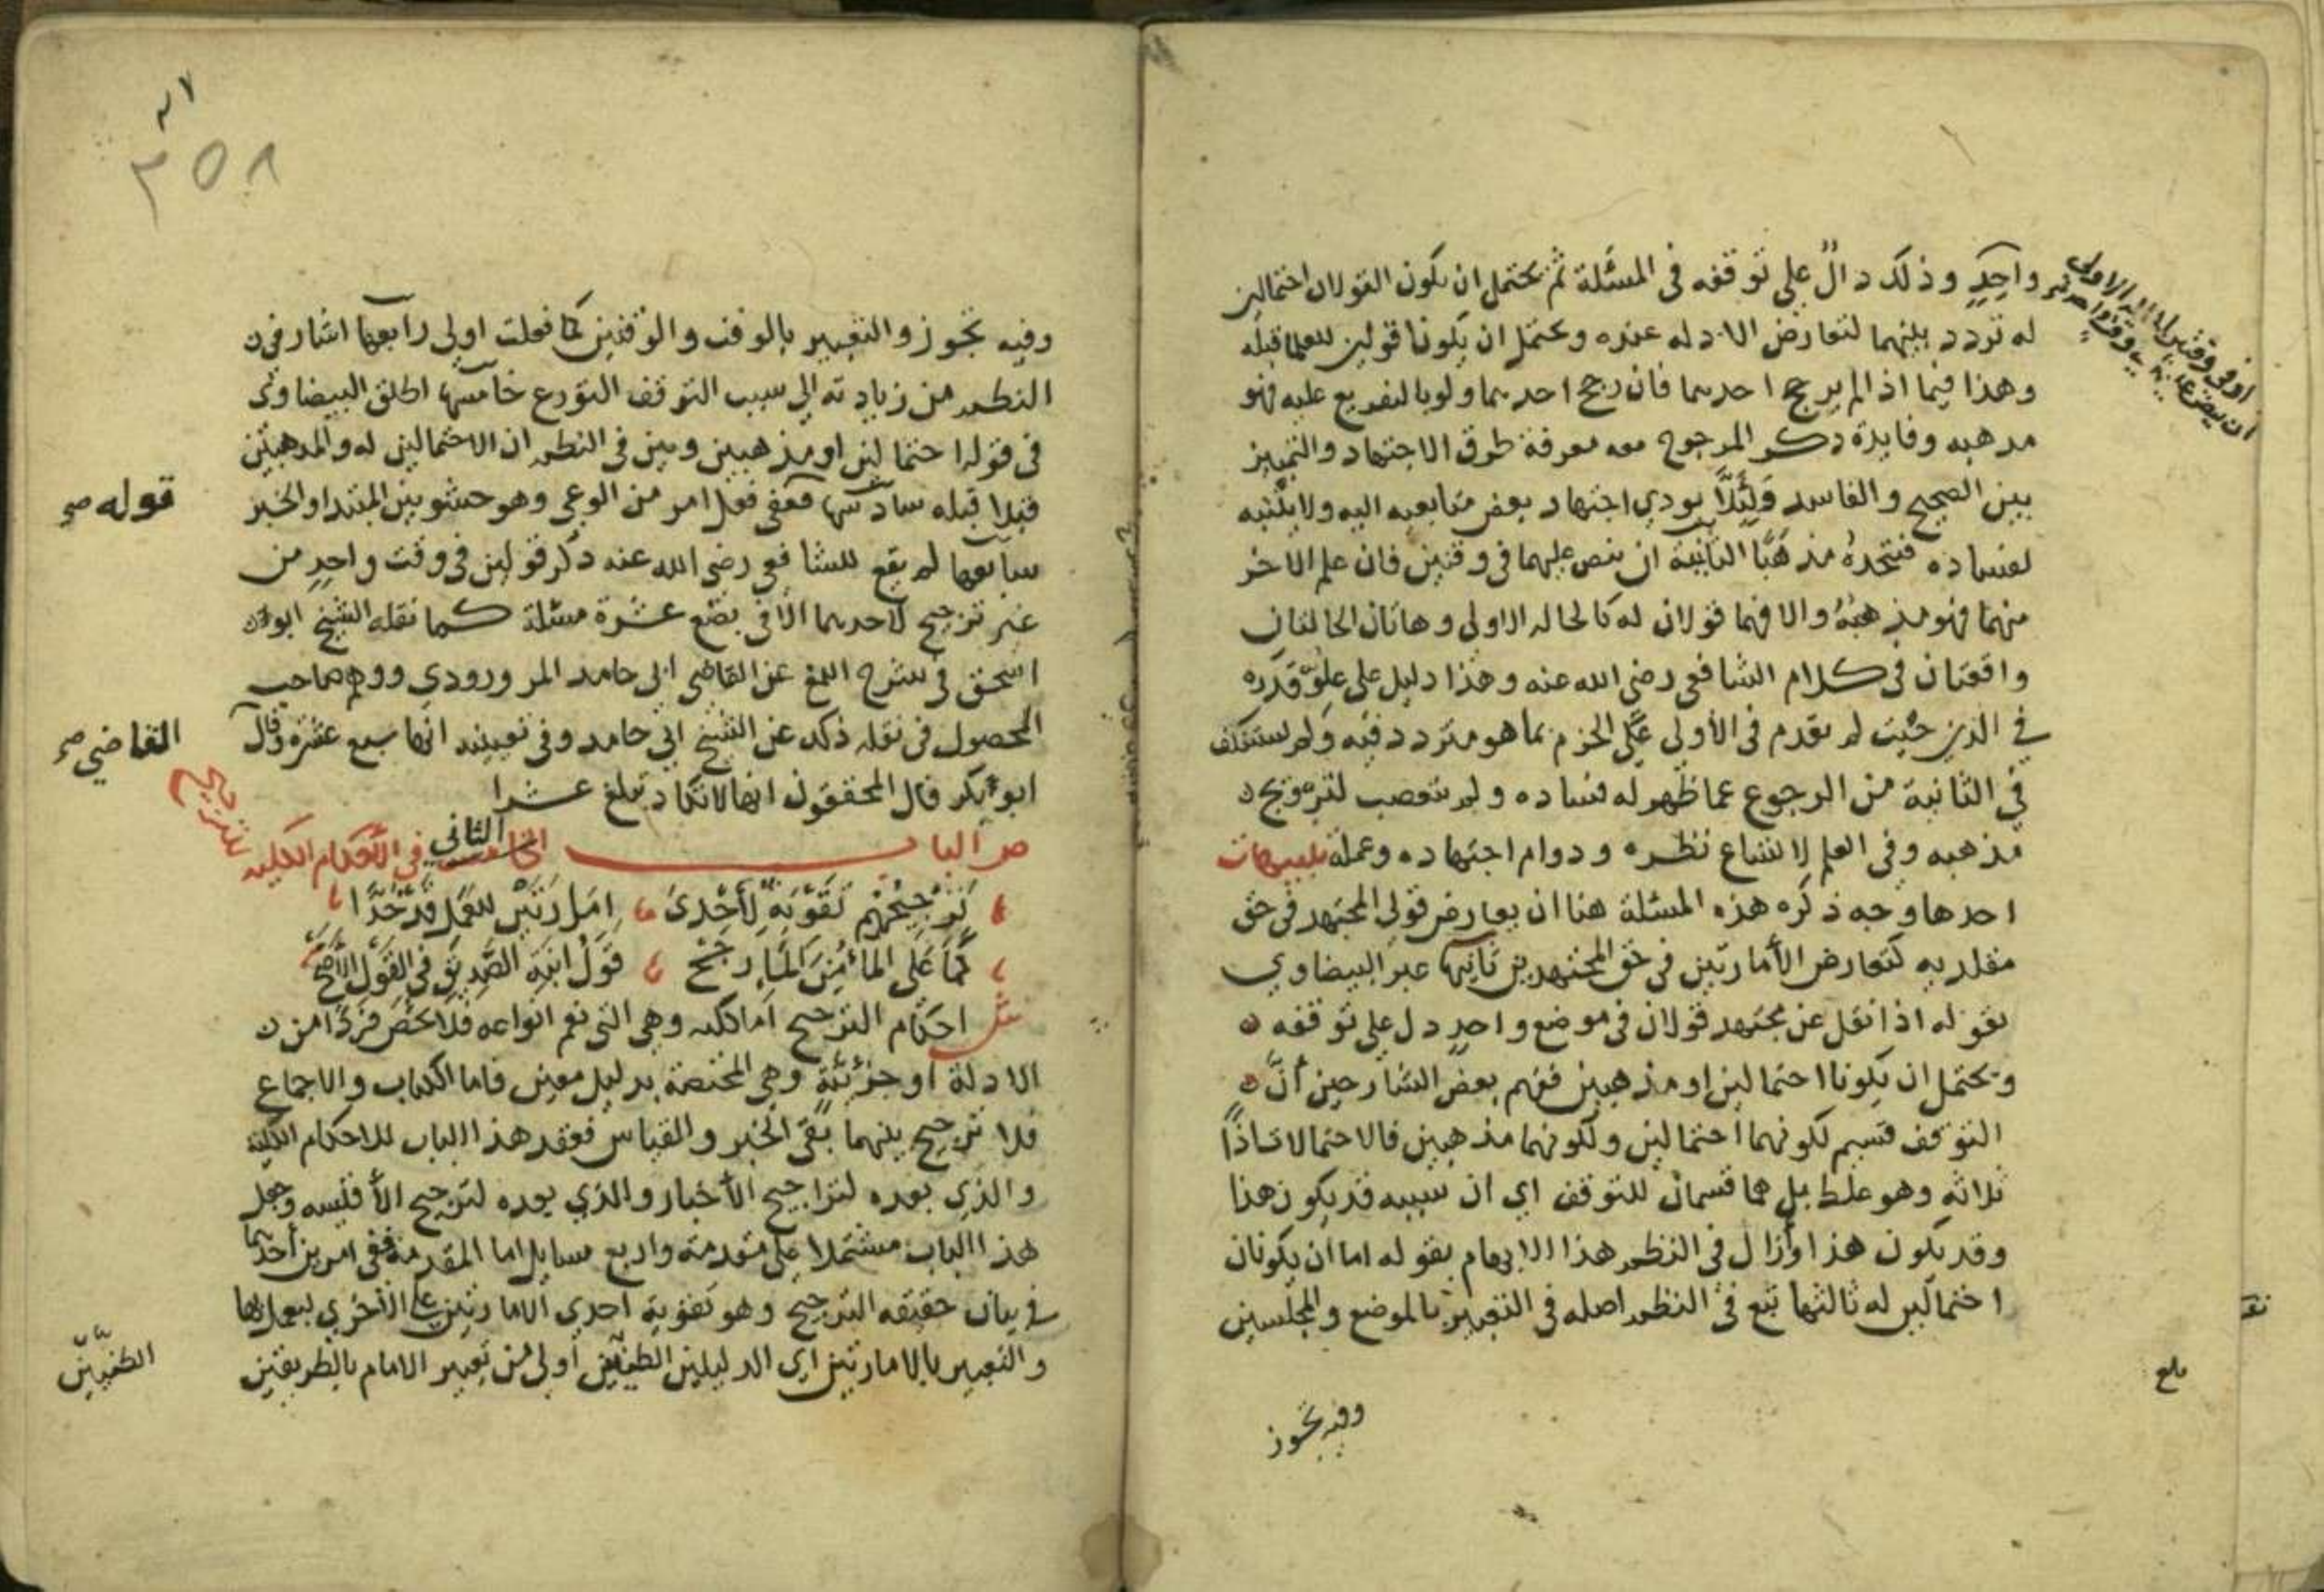 واحد وذلك دال على توقفه في المسئلة ثم يحتمل ان يكون القولان احتمالين
له تردد بينهما لتعارض الادله عنده ويحتمل ان يكونا قولين للعلما قبله
وهذا فيما اذا لم يرجح احدهما فان رجح احدهما ولو بالتفريع عليه فهو
مذهبه وفايدة ذكر المرجوح معه معرفة طرق الاجتهاد والتمييز
بين الصحيح والفاسد ولئلا يودي اجتهاد بعض متابعيه اليه ولا يتنبه
لفساده فيتخذه مذهبا الثانية ان ينص عليهما في وقتين فان علم الاخر
منهما فهو مذهبه والا فهما قولان له كالحاله الاولى وهاتان الحالتان
واقعتان في كلام الشافعي رضي الله عنه وهذا دليل على علو قدره
في الدين حيث لم يقدم في الأولى على الجزم بما هو متردد فيه ولم يستنكف
في الثانية من الرجوع عما ظهر له فساده ولم يتعصب لترويج
مذهبه وفي العلم لاتساع نظره ودوام اجتهاده وعمله تنبيهات
احدها وجه ذكره هذه المسئلة هنا ان تعارض قولي المجتهد في حق
مقلديه كتعارض الأمارتين في حق المجتهدين ثانيها عبر البيضاوي
بقوله اذا نقل عن مجتهد قولان في موضع واحد دل على توقفه
ويحتمل ان يكونا احتمالين او مذهبين ففهم بعض الشارحين أن
التوقف قسيم لكونهما احتمالين ولكونهما مذهبين فالاحتمالات اذًا
ثلاثه وهو غلط بل هما قسمان للتوقف اي ان سببه قد يكون هذا
وقد يكون هذا وأزال في النظم هذا الابهام بقوله اما ان يكونان
احتمالين له ثالثها تبع في النظم اصله في التعبير بالموضع والمجلسين
وفيه تجوز
بلغ
٣٥٨
وفيه تجوز والتعبير بالوقت والوقتين كما فعلت اولى رابعها اشار في
النظم من زيادته الى سبب التوقف التورع خامسها اطلق البيضاوي
في قوله احتمالين او مذهبين وبين في النظم ان الاحتمالين له والمذهبين
قيلا قبله سادسها فعي فعل امر من الوعي وهو حشو بين المبتدا والخبر
قوله صح
سابعها لم يقع للشافعي رضي الله عنه ذكر قولين في وقت واحد من
غير ترجيح لاحدهما الا في بضع عشرة مسئلة كما نقله الشيخ ابو
اسحق في شرح اللمع عن القاضي ابي حامد المرورودي ووهم صاحب
المحصول في نقله ذلك عن الشيخ ابي حامد وفي تعيينه انها سبع عشره وقال
القاضي صح
ابو بكر قال المحققون انها لا تكاد تبلغ عشرا
ص الباب الثاني في الأحكام الكليه
ترجيح
ترجيحهم تقوية لأحدى امارتين للعمل قد حدا
كما على الماء من الماء رجح قول ابنة الصديق في القول الأصح
ش احكام الترجيح اما كليه وهي التي تعم انواعه فلا تخص فردا من
الادلة او جزئية وهي المختصة بدليل معين فاما الكتاب والاجماع
فلا ترجيح بينهما بقي الخبر والقياس فعقد هذا الباب للاحكام الكلية
والذي بعده لتراجيح الأخبار والذي بعده لترجيح الأقيسه وجعل
هذا الباب مشتملا على مقدمة واربع مسايل اما المقدمة ففي امرين أحدهما
في بيان حقيقه الترجيح وهو تقوية احدى الامارتين على الأخرى ليعمل بها
والتعبير بالامارتين اي الدليلين الظنيين أولى من تعبير الامام بالطريقين
الظنيين